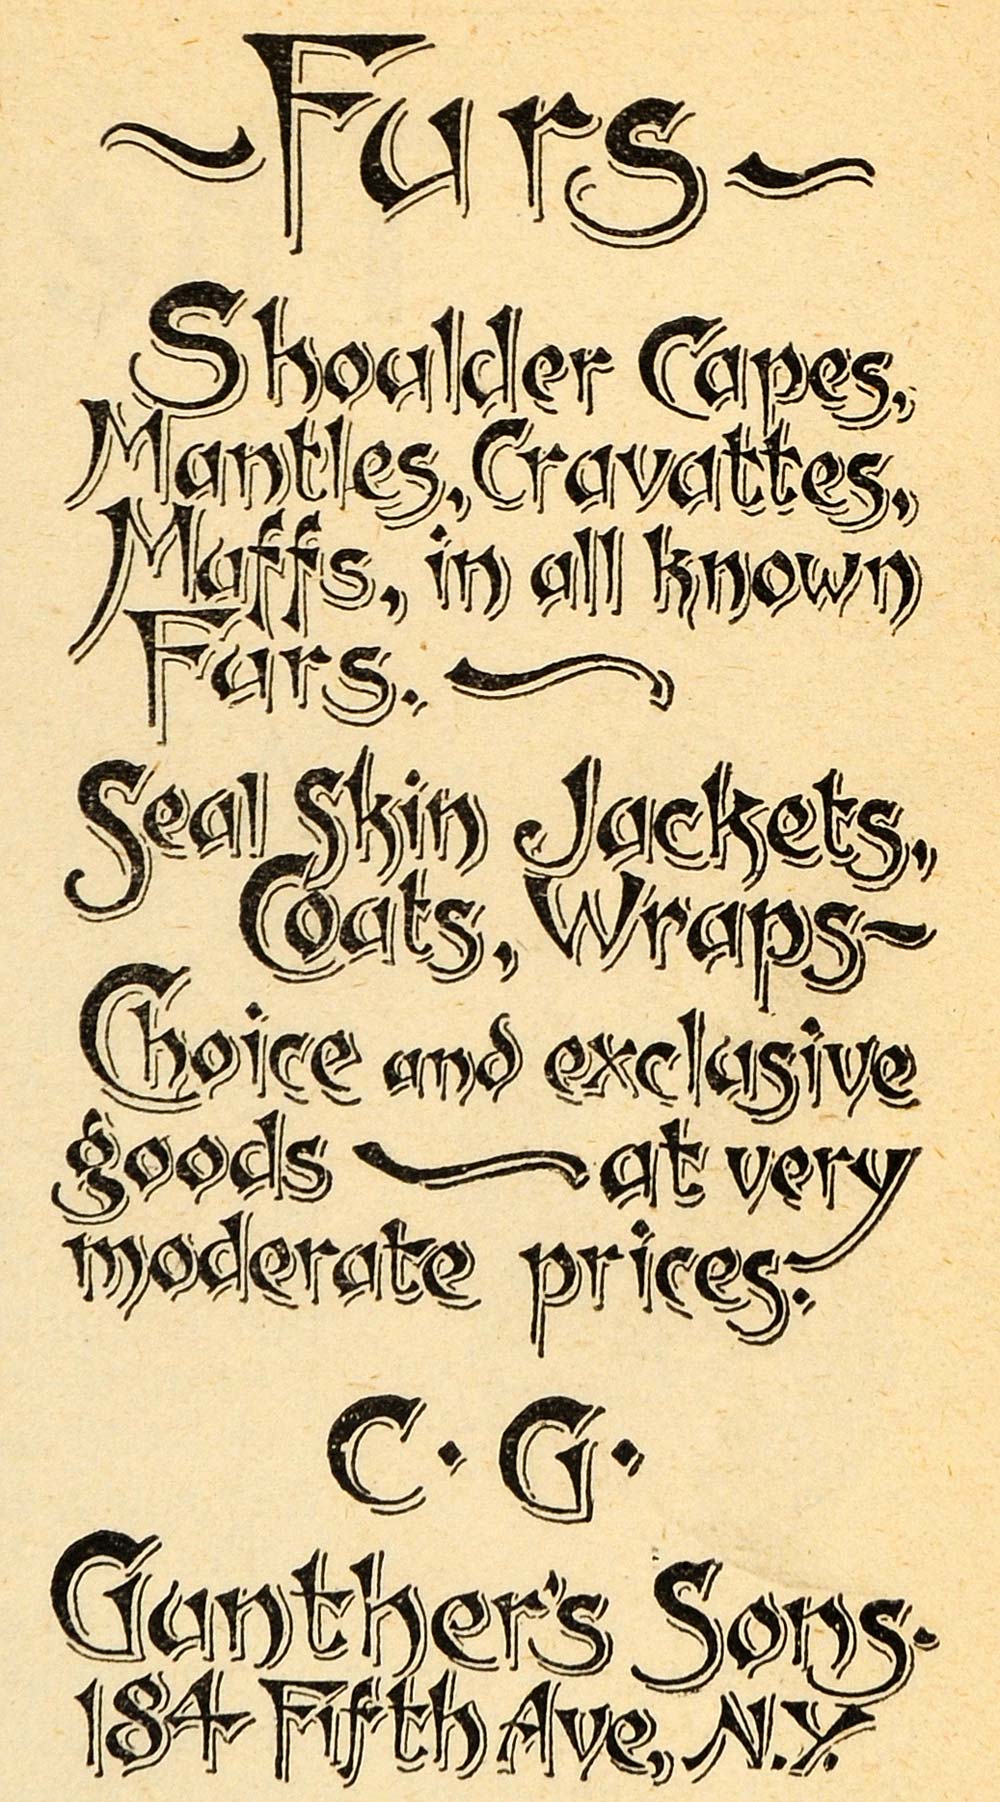 ~Furs~
Shoulder Capes,
Mantles, Cravattes,
Muffs, in all known
Furs.
Seal Skin Jackets,
Coats, Wraps~
Choice and exclusive
goods ~ at very
moderate prices.
C. G.
Gunther's Sons.
184 Fifth Ave., N.Y.